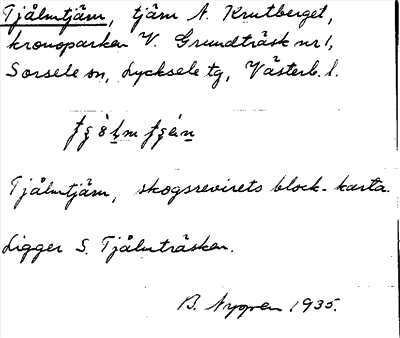 Tjålmtjärn, tjärn N. Krutberget,
kronoparken V. Grundträsk nr 1,
Sorsele sn, Lycksele tg, Västerb. l.
Tjålmtjärn, skogsrevirets block-karta.
Ligger S. Tjålmträsken.
B. Nygren 1935.